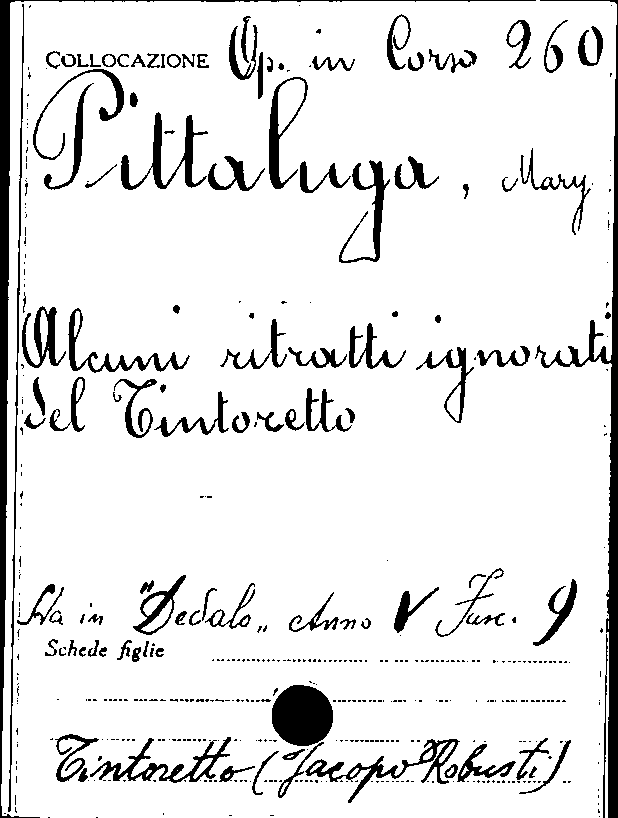 COLLOCAZIONE Op. in Corso 260
Pittaluga, Mary
Alcuni ritratti ignorati
del Tintoretto
Sta in "Dedalo„ Anno V Fasc. 9
Schede figlie
Tintoretto (Jacopo Robusti)